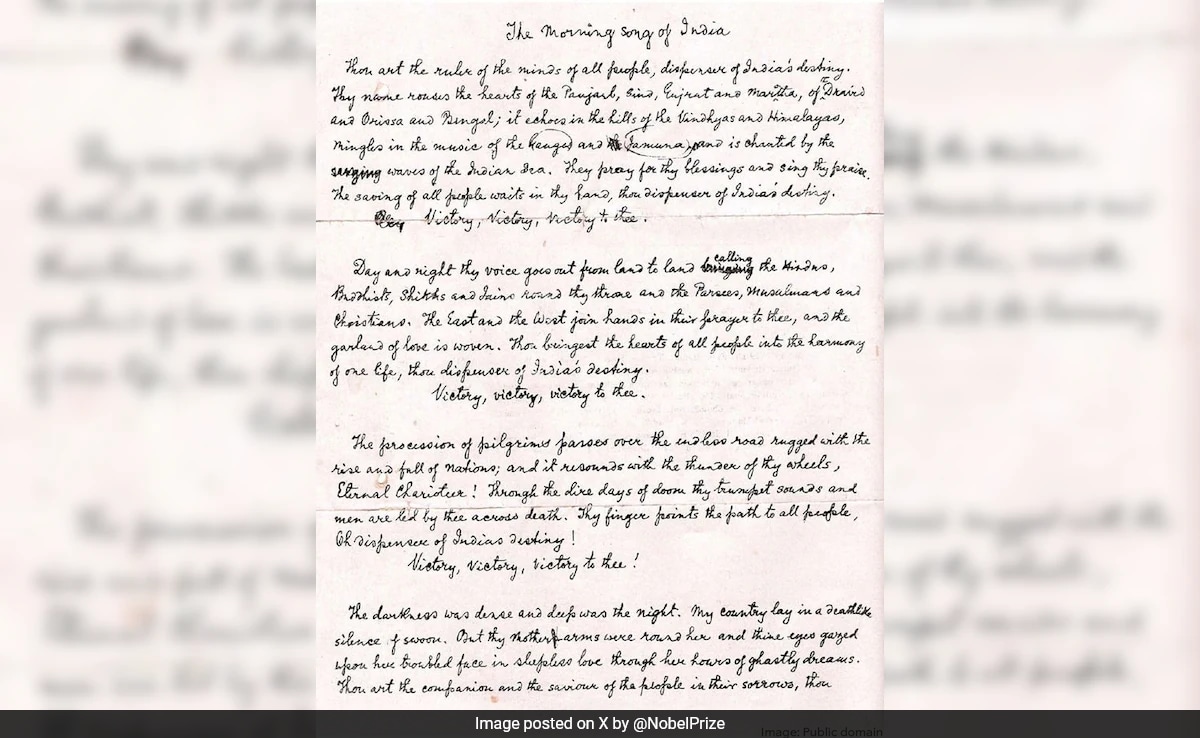 The Morning song of India
Thou art the ruler of the minds of all people, dispenser of India's destiny.
Thy name rouses the hearts of the Panjaub, Sind, Gujrat and Maratta, of Dravid
and Orissa and Bengal; it echoes in the hills of the Vindhyas and Himalayas,
mingles in the music of the Ganges and Jamuna, and is chanted by the
surging waves of the Indian Sea. They pray for thy blessings and sing thy praise.
The saving of all people waits in thy hand, thou dispenser of India's destiny.
Victory, Victory, Victory to thee.
Day and night thy voice goes out from land to land calling the Hindus,
Buddhists, Shikhs and Jains round thy throne and the Parsees, Musulmans and
Christians. The East and the West join hands in their prayer to thee, and the
garland of love is woven. Thou bringest the hearts of all people into the harmony
of one life, thou dispenser of India's destiny.
Victory, victory, victory to thee.
The procession of pilgrims passes over the endless road rugged with the
rise and fall of nations; and it resounds with the thunder of thy wheels,
Eternal Charioteer! Through the dire days of doom thy trumpet sounds and
men are led by thee across death. Thy finger points the path to all people,
Oh dispenser of India's destiny!
Victory, Victory, victory to thee!
The darkness was dense and deep was the night. My country lay in a deathlike
silence of swoon. But thy mother arms were round her and thine eyes gazed
upon her troubled face in sleepless love through her hours of ghastly dreams.
Thou art the companion and the saviour of the people in their sorrows, thou
Image posted on X by @NobelPrize
Image: Public domain